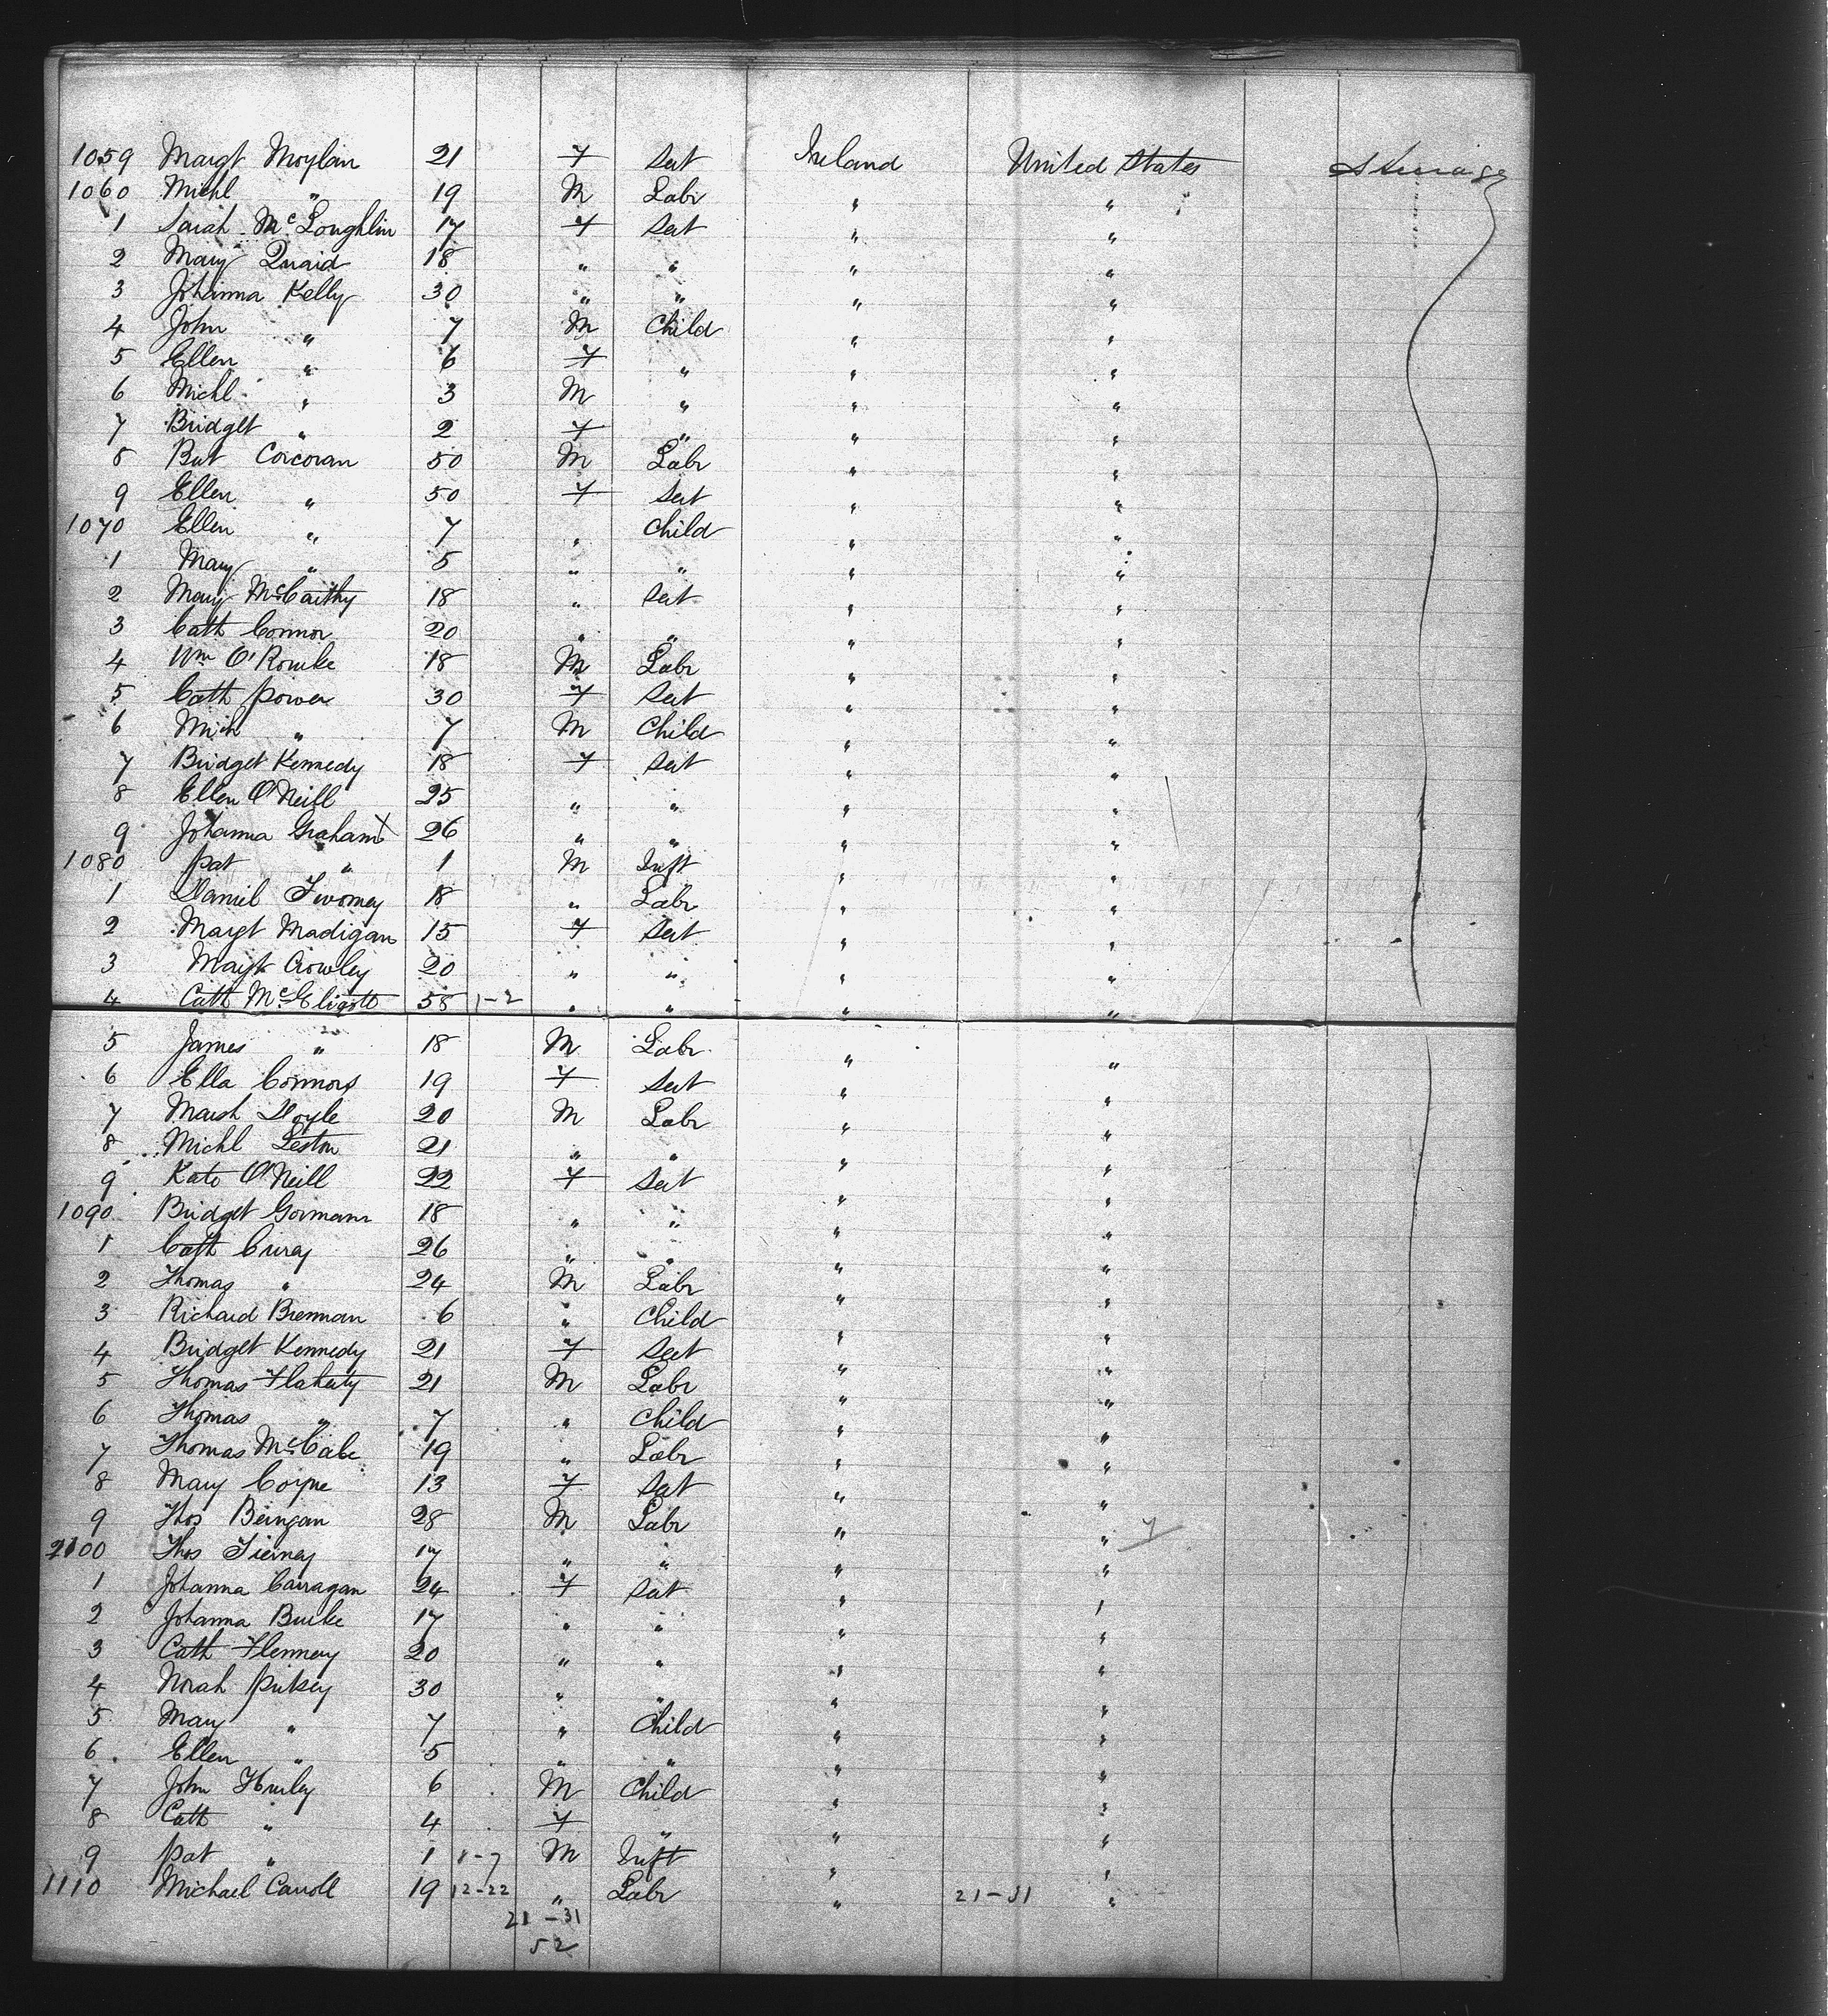 1059 Margt Moylan 21 F Sert Ireland United States Steerage
1060 Michl " 19 M Labr " "
1 Sarah McLoughlin 17 F Sert " "
2 Mary Quaid 18 " " " "
3 Johanna Kelly 30 " " " "
4 John " 7 M Child " "
5 Ellen " 6 F " " "
6 Michl " 3 M " " "
7 Bridget " 2 F " " "
8 Bat Corcoran 50 M Labr " "
9 Ellen " 50 F Sert " "
1070 Ellen " 7 " Child " "
1 Mary " 5 " " " "
2 Mary McCarthy 18 " Sert " "
3 Cath Connor 20 " " " "
4 Wm O'Rourke 18 M Labr " "
5 Cath Power 30 F Sert " "
6 Mich " 7 M Child " "
7 Bridget Kennedy 18 F Sert " "
8 Ellen O'Neill 25 " " " "
9 Johanna Graham X 26 " " " "
1080 Pat " 1 M Inft " "
1 Daniel Twomey 18 " Labr " "
2 Margt Madigan 15 F Sert " "
3 Margt Crowley 20 " " " "
4 Cath McEligott 55 1-2 " " " "
5 James " 18 M Labr " "
6 Ella Connors 19 F Sert " "
7 Doyle 20 M Labr " "
8 Michl Leston 21 " " " "
9 Kate O'Neill 22 F Sert " "
1090 Bridget Gormann 18 " " " "
1 Cath 26 " " " "
2 Thomas " 24 M Labr " "
3 Richard Brennan 6 " Child " "
4 Bridget Kennedy 21 F Sert " "
5 Thomas Flaherty 21 M Labr " "
6 Thomas " 7 " Child " "
7 Thomas McCabe 19 " Labr " "
8 Mary Coyne 13 F Sert " "
9 Thos 28 M Labr " "
2100 Thos Tierney 17 " " " "
1 Johanna Carragan 24 F Sert " "
2 Johanna Burke 17 " " " "
3 Cath Flemmey 20 " " " "
4 Norah 30 " " " "
5 Mary " 7 " Child " "
6 Ellen " 5 " " " "
7 John Hurley 6 M Child " "
8 Cath " 4 F " " "
9 Pat " 1 1-7 M Inft " "
1110 Michael Carroll 19 12-22 " Labr " 21-31 "
21-31
52